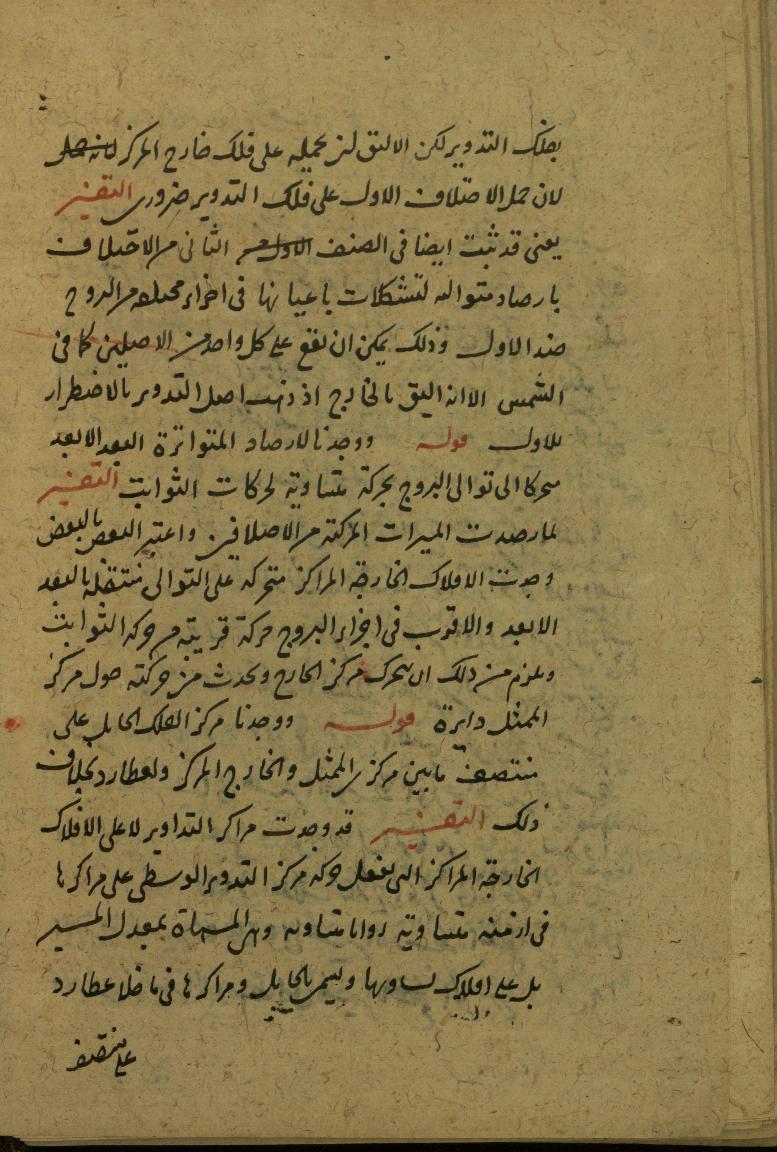 بفلك التدوير لكن الاليق ان يحمل على فلك خارج المركز
لان حمل الاختلاف الاول على فلك التدوير ضرورى التفسير
يعنى قد ثبت ايضا فى الصنف الثانى من الاختلاف
بارصاد متواليه لتشكلات باعيانها فى اجزاء مختلفه من البروج
ضد الاول وذلك يمكن ان يقع على كل واحد من الاصلين كما فى
الشمس الا انه اليق بالخارج اذ ذهب اصل التدوير بالاضطرار
للاول قوله ووجدنا بالارصاد المتواترة البعد الابعد
متحركا الى توالى البروج بحركة متساوية لحركات الثوابت التفسير
لما رصدت الميرات المركبة من الاختلافين واعتبر البعض بالبعض
وجدت الافلاك الخارجة المراكز متحركة على التوالى منتقلة بالبعد
الابعد والاقرب فى اجزاء البروج حركة قريبة من حركة الثوابت
ويلزم من ذلك ان يتحرك مركز الخارج ويحدث من حركته حول مركز
الممثل دايرة قوله ووجدنا مركز الفلك الحامل على
منتصف ما بين مركزى الممثل والخارج المركز ولعطارد بخلاف
ذلك التفسير قد وجدت مراكز التداوير لا على الافلاك
الخارجة المراكز التى يفعل حركة مركز التدوير الوسطى على مراكزها
فى ازمنة متساوية زوايا متساوية وهى المسماة بمعدل المسير
بل على افلاك تساويها وتسمى بالحامل ومراكزها فى ما خلا عطارد
على منتصف